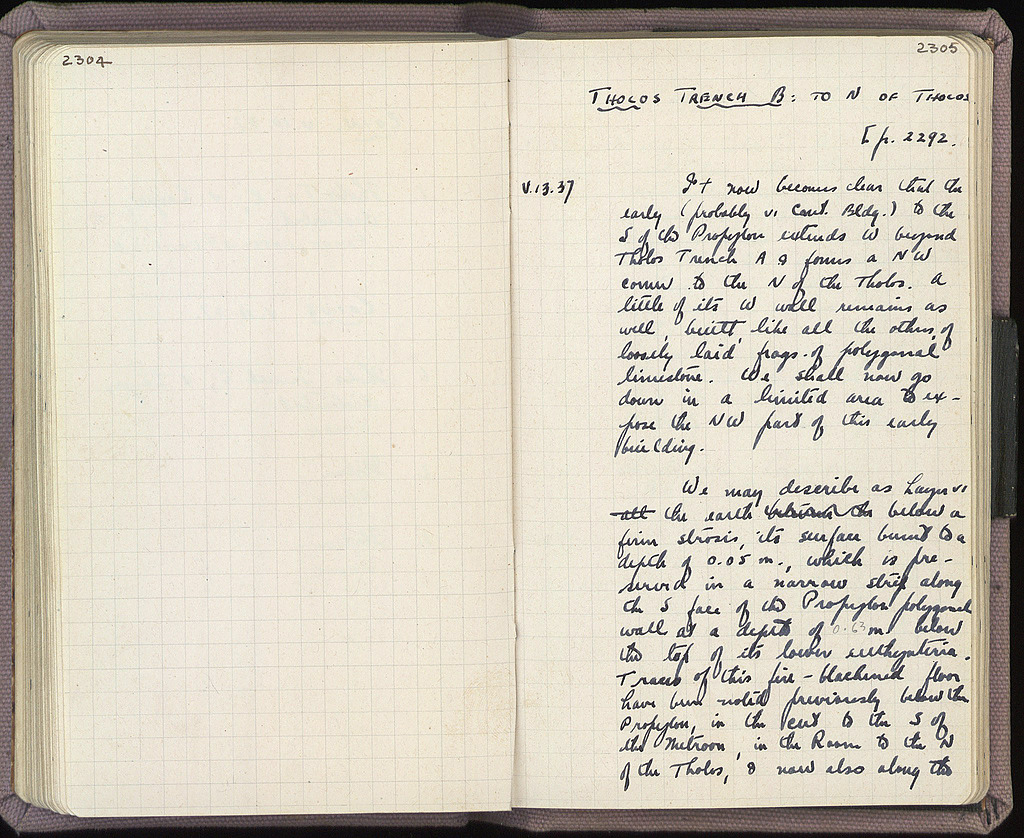 2304
2305
THOLOS TRENCH B: TO N OF THOLOS
[p. 2292.
V.13.37
It now becomes clear that the
early (probably VI Cent. Bldg.) to the
S of the Propylon extends W beyond
Tholos Trench A & forms a NW
corner to the N of the Tholos. A
little of its W wall remains as
well, built, like all the others, of
loosely laid frags. of polygonal
limestone. We shall now go
down in a limited area to ex-
pose the NW part of this early
building.
We may describe as Layer VI
all the earth between the below a
firm strosis, its surface burnt to a
depth of 0.05 m., which is pre-
served in a narrow strip along
the S face of the Propylon polygonal
wall at a depth of 0.63 m below
the top of its lower euthynteria.
Traces of this fire-blackened floor
have been noted previously below the
Propylon, in the cut to the S of
the Metroon, in the Room to the N
of the Tholos, & now also along the